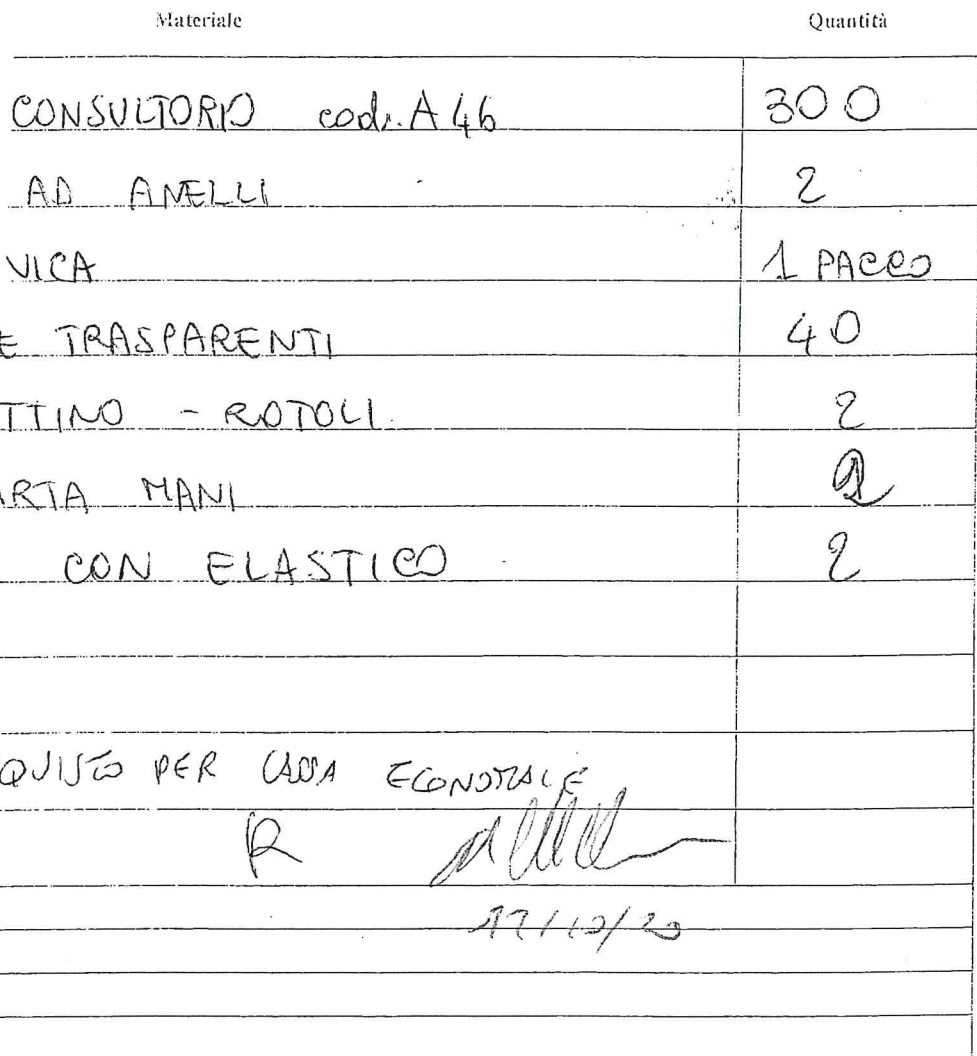 Materiale Quantità
CONSULTORIO cod. A46 300
AD ANELLI 2
VICA 1 PACCO
E TRASPARENTI 40
TTINO - ROTOLI 2
ARTA MANI 2
CON ELASTICO 2
QUISTO PER CASSA ECONOMALE
R